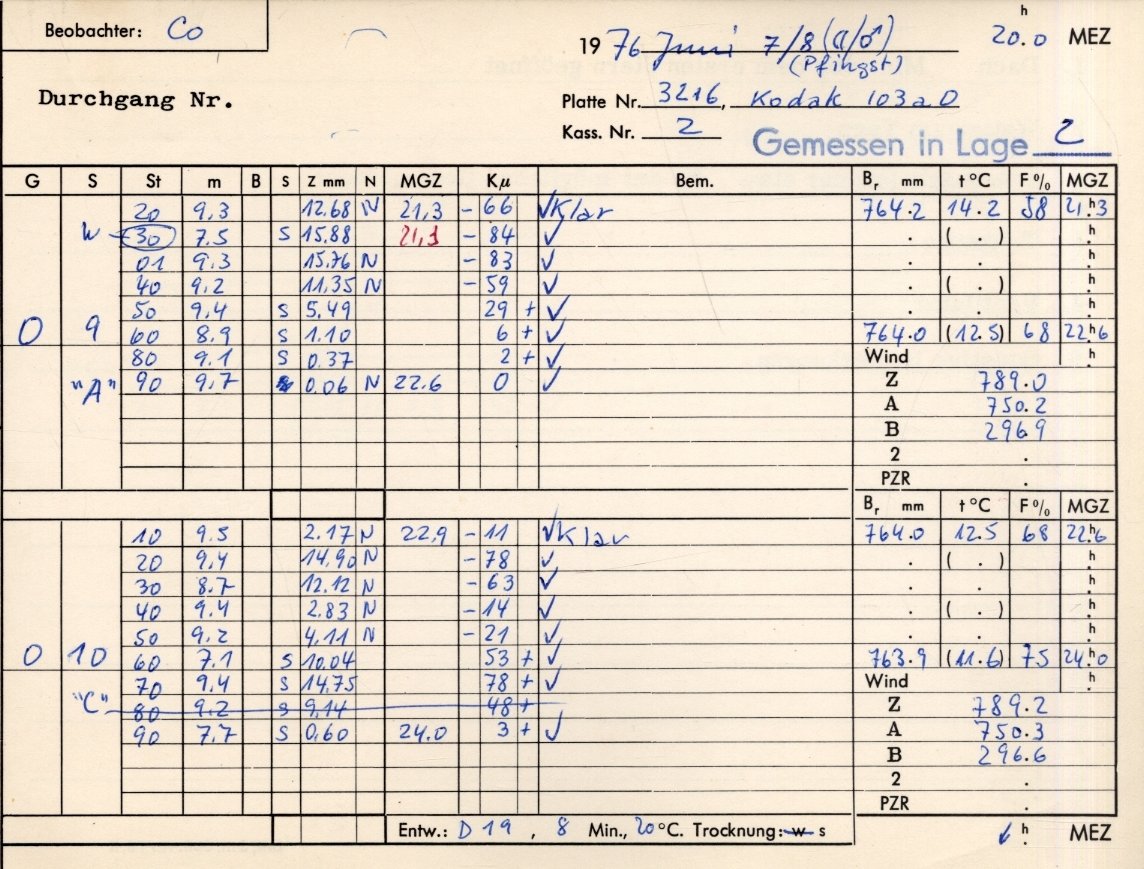 Beobachter: Co
1976 Juni 7/8 (☾/♂) 20.0 h MEZ
(Pfingst)
Durchgang Nr.
Platte Nr. 3216, Kodak 103aO
Kass. Nr. 2
Gemessen in Lage 2
G S St m B S Z mm N MGZ Kμ Bem. Br mm t °C F % MGZ
20 9.3 12.68 N 21,3 - 66 ✓ Klar 764.2 14.2 58 21h.3
W 30 7.5 S 15.88 21,3 - 84 ✓ . ( . ) h.
01 9.3 15.76 N - 83 ✓ . . h.
40 9.2 11,35 N - 59 ✓ . ( . ) h.
50 9.4 S 5,49 29 + ✓ . . h.
0 9 60 8.9 S 1.10 6 + ✓ 764.0 (12.5) 68 22h.6
80 9.1 S 0.37 2 + ✓ Wind h.
"A" 90 9.7 0.06 N 22.6 0 ✓ Z 789.0
A 750.2
B 296.9
2 .
PZR .
Br mm t °C F % MGZ
10 9.5 2.17 N 22,9 - 11 ✓ Klar 764.0 12.5 68 22h.6
20 9.4 14.90 N - 78 ✓ . ( . ) h.
30 8.7 12.12 N - 63 ✓ . . h.
40 9.4 2.83 N - 14 ✓ . ( . ) h.
50 9.2 4.11 N - 21 ✓ . . h.
0 10 60 7.1 S 10.04 53 + ✓ 763.9 (11.6) 75 24h.0
70 9.4 S 14.75 78 + ✓ Wind h.
"C" 80 9.2 S 9,14 48 + Z 789.2
90 7.7 S 0.60 24.0 3 + ✓ A 750.3
B 296.6
2 .
PZR .
Entw.: D 19, 8 Min., 20 °C. Trocknung: w s h. MEZ